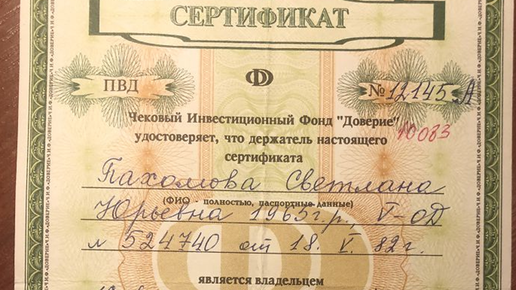 СЕРТИФИКАТ
ПВД
№ 12145 А
Чековый Инвестиционный Фонд "Доверие"
10083
удостоверяет, что держатель настоящего
сертификата
Пахомова Светлана
(ФИО - полностью, паспортные данные)
Юрьевна 1965 г.р., V-ОД
№ 524740 от 18. V. 82г.
является владельцем